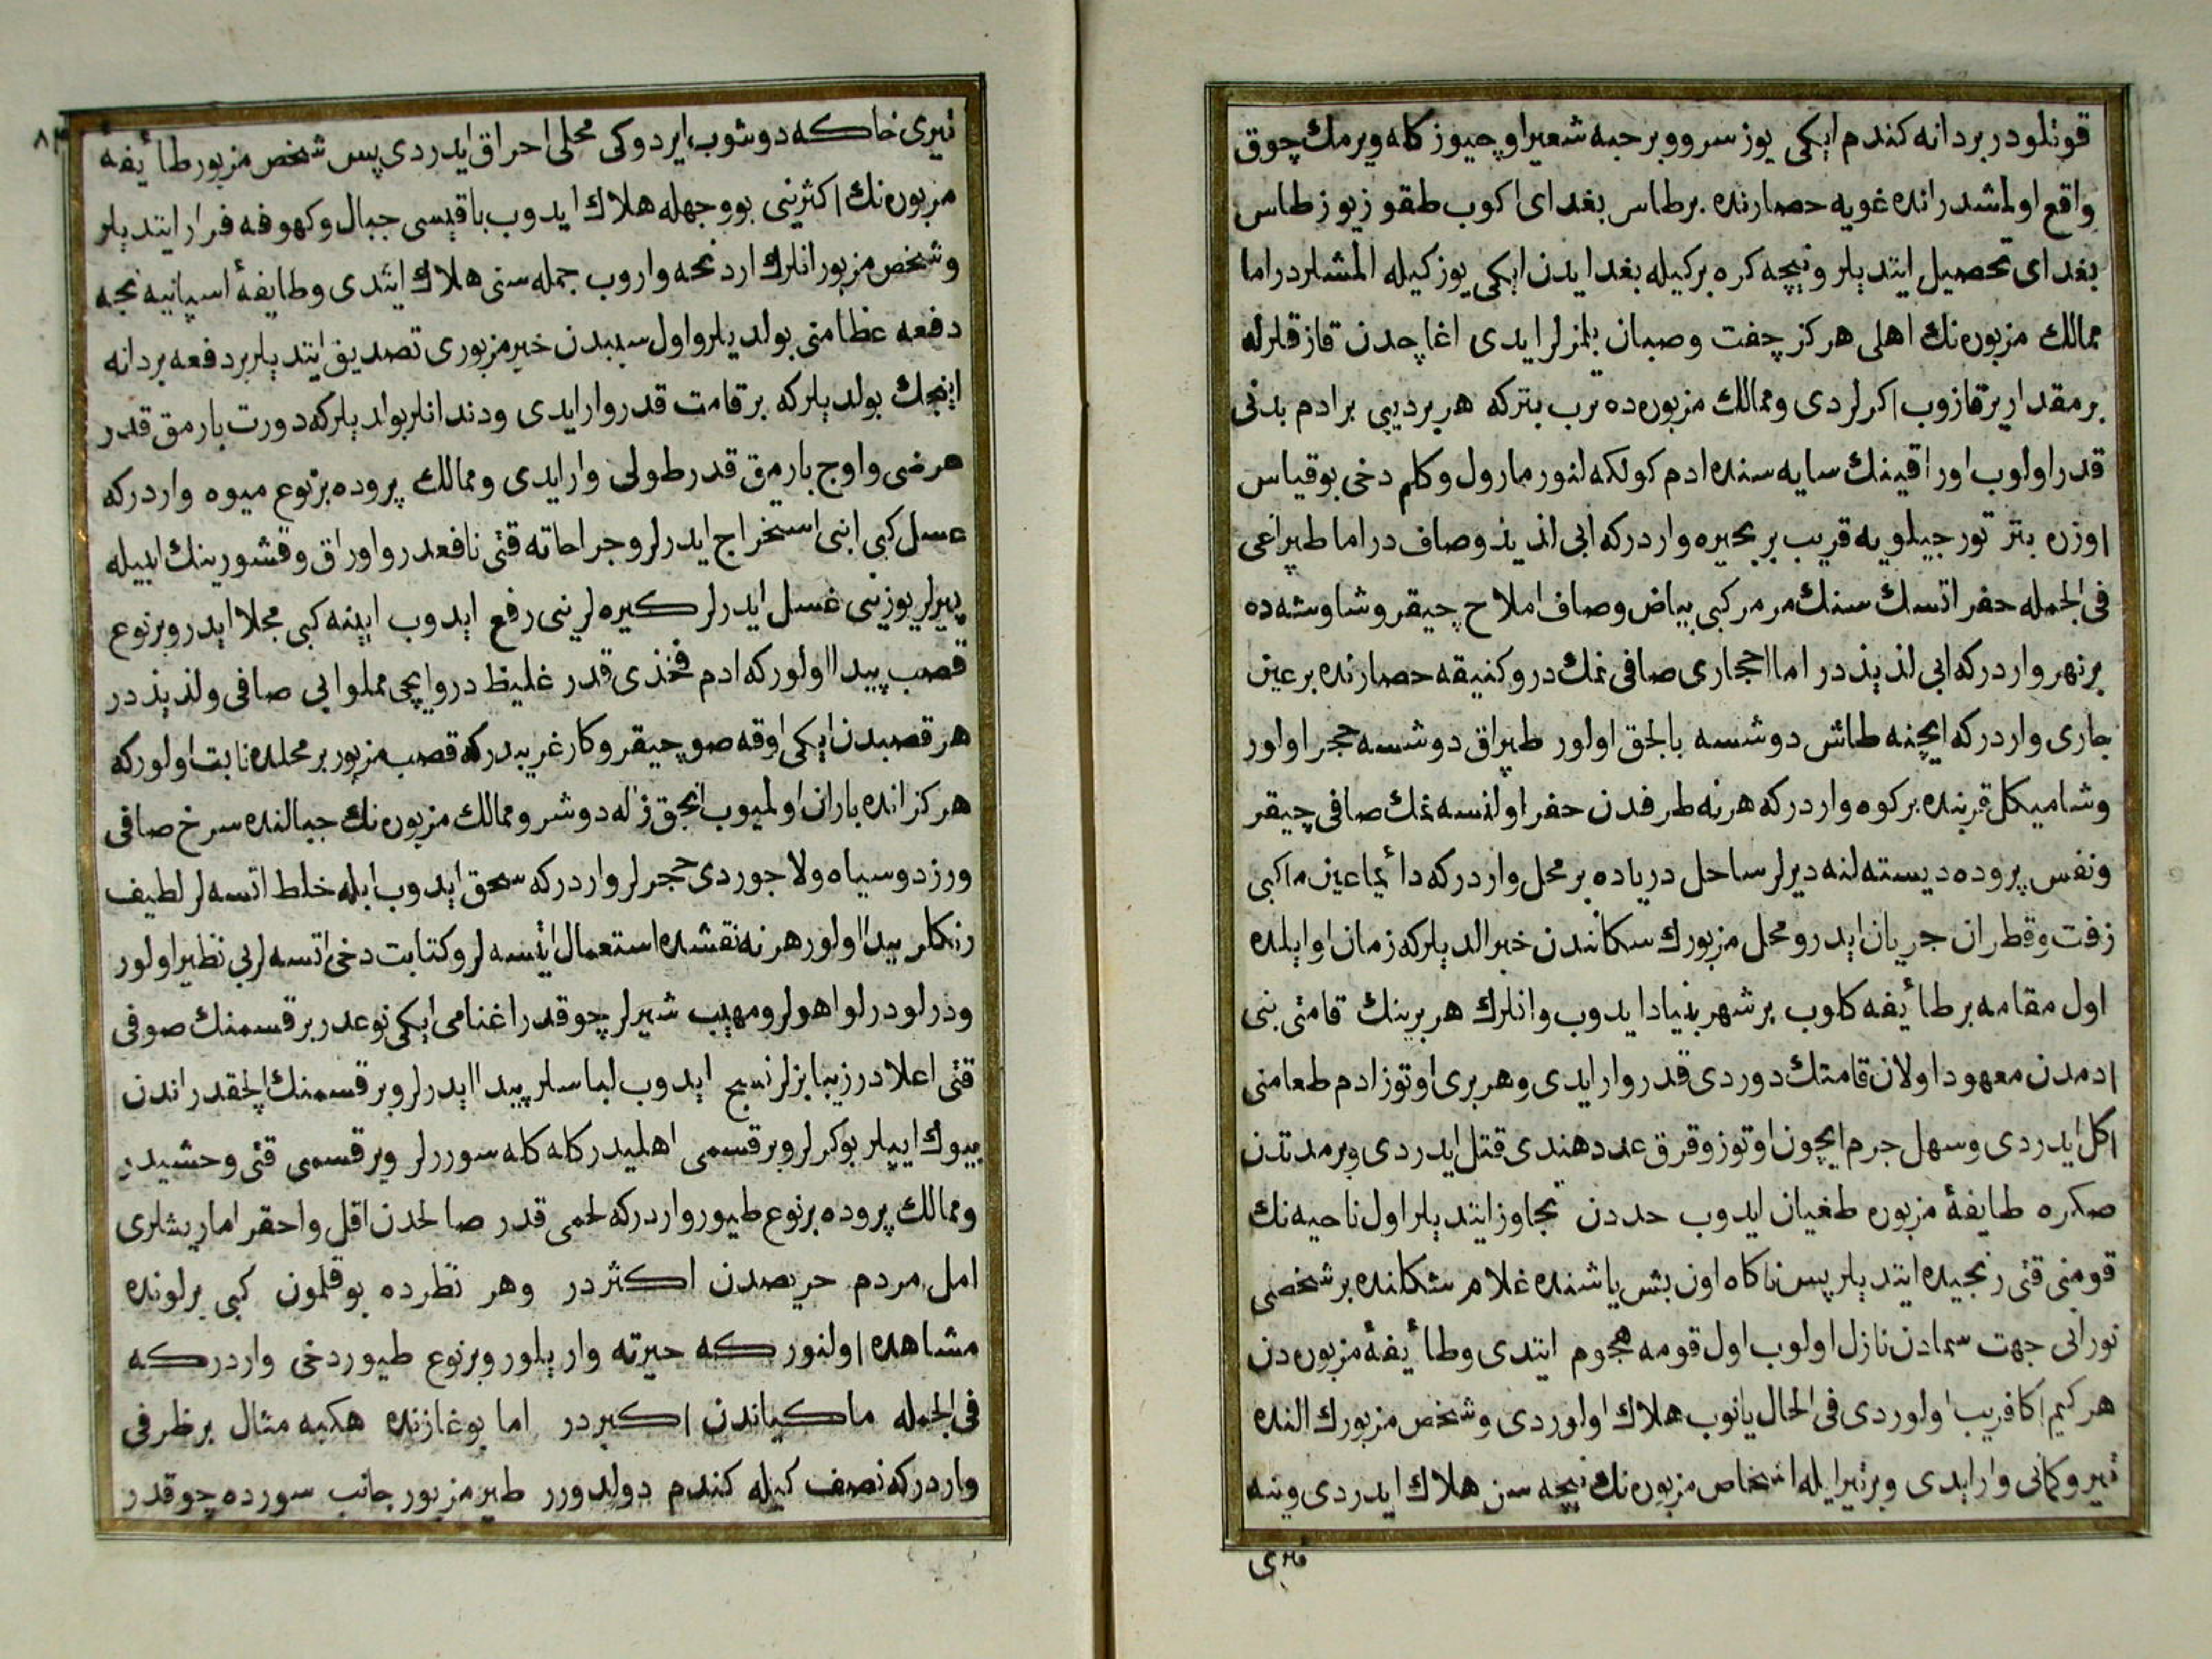 قوتلودر بر دانه كندم ایكی یوز سر و و بر حبه شعیر اوچیوز كله ویرمك چوق
واقع اولمشدر انده غویه حصارنده بر طاس بغدای اكوب طقوز یوز طاس
بغدای تحصیل ایتدیلر و نیچه كره بر كیله بغدایدن ایكی یوز كیله المشلردر اما
ممالك مزبوره‌نك اهلی هركز چفت و صبان بلمزلر ایدی اغاچدن قازقلرله
بر مقدار یر قازوب اكرلردی و ممالك مزبوره‌ده ترب بتر كه هر بر دیبی بر ادم بدنی
قدر اولوب اوراقینك سایه سنده ادم كولكه لنور مارول و كلم دخی بو قیاس
اوزره بتر تورجیلویه قریب بر بحیره واردر كه ابی لذیذ و صافدر اما طپراغی
فی الجمله حفر اتسك سنك مرمر كبی بیاض و صاف املاح چیقر و شاوشه ده
بر نهر واردر كه ابی لذیذدر اما احجاری صافی نمكدر و كنیقه حصارنده بر عین
جاری واردر كه ایچنه طاش دوشسه بالجق اولور طپراق دوشسه حجر اولور
و شامیكل قربنده بر كوه واردر كه هر نه طرفدن حفر اولنسه نمك صافی چیقر
و نفس پروده دیسته لنه دیرلر ساحل دریاده بر محل واردر كه دائما عین ما كبی
زفت و قطران جریان ایدر و محل مزبورك سكانندن خبر الدیلر كه زمان اوایلده
اول مقامه بر طائفه كلوب بر شهر بنیاد ایدوب و انلرك هر برینك قامتی بنی
ادمدن معهود اولان قامتك دوردی قدر وار ایدی و هر بری اوتوز ادم طعامنی
اكل ایدردی و سهل جرم ایچون اوتوز و قرق عدد هندی قتل ایدردی و بر مدتدن
صكره طایفهٔ مزبوره طغیان ایدوب حددن تجاوز ایتدیلر اول ناحیه‌نك
قومنی قتی رنجیده ایتدیلر پس ناكاه اون بش یاشنده غلام شكلنده بر شخصی
نورانی جهت سمادن نازل اولوب اول قومه هجوم ایتدی و طائفهٔ مزبوره‌دن
هر كیم اكا قریب اولوردی فی الحال یانوب هلاك اولوردی و شخص مزبورك النده
تیر و كمانی وار ایدی و بر تیر ایله اشخاص مزبوره‌نك نیچه سن هلاك ایدردی و ینه
تیری خاكه دوشوب ایردوكی محلی احراق ایدردی پس شخص مزبور طائفهٔ
مزبوره‌نك اكثرینی بو وجهله هلاك ایدوب باقیسی جبال و كهوفه فرار ایتدیلر
و شخص مزبور انلرك اردنجه واروب جمله سنی هلاك ایتدی و طایفهٔ اسپانیه نجه
دفعه عظامنی بولدیلر و اول سببدن خبر مزبوری تصدیق ایتدیلر بر دفعه بر دانه
اینجك بولدیلر كه بر قامت قدر وار ایدی و دندانلر بولدیلر كه دورت بارمق قدر
عرضی و اوچ بارمق قدر طولی وار ایدی و ممالك پروده بر نوع میوه واردر كه
عسل كبی ابنی استخراج ایدرلر و جراحاته قتی نافعدر و اوراق و قشورینك ابیله
پیرلر یوزینی غسل ایدرلر كیره لرینی رفع ایدوب اینه كبی مجلا ایدر و بر نوع
قصب پیدا اولور كه ادم فخذی قدر غلیظدر و ایچی مملو ابی صافی و لذیذدر
هر قصبدن ایكی اوقه صو چیقر و كار غریبدر كه قصب مزبور بر محلده نابت اولور كه
هركز انده باران اولمیوب انجق ژاله دوشر و ممالك مزبوره‌نك جبالنده سرخ صافی
و زرد و سیاه و لاجوردی حجرلر واردر كه سحق ایدوب ابله خلط اتسه لر لطیف
رنكلر پیدا اولور هر نه نقشده استعمال ایتسه لر و كتابت دخی اتسه لر بی نظیر اولور
و درلو درلو اهولر و مهیب شیرلر چوقدر اغنامی ایكی نوعدر بر قسمنك صوفی
قتی اعلادر زیبا بزلر نسج ایدوب لباسلر پیدا ایدرلر و بر قسمنك الچقدر اندن
بیوك ایپلر بوكرلر و بر قسمی اهلیدر كله كله سوررلر و بر قسمی قتی وحشیدر
و ممالك پروده بر نوع طیور واردر كه لحمی قدر صالحدن اقل و احقر اما ریشلری
امل مردم حریصدن اكثردر و هر نظرده بوقلمون كبی بر لونده
مشاهده اولنور كه حیرته واریلور و بر نوع طیور دخی واردر كه
فی الجمله ماكیاندن اكبردر اما بوغازنده هكبه مثال بر ظرفی
واردر كه نصف كیله كندم دولدورر طیر مزبور جانب سورده چوقدر